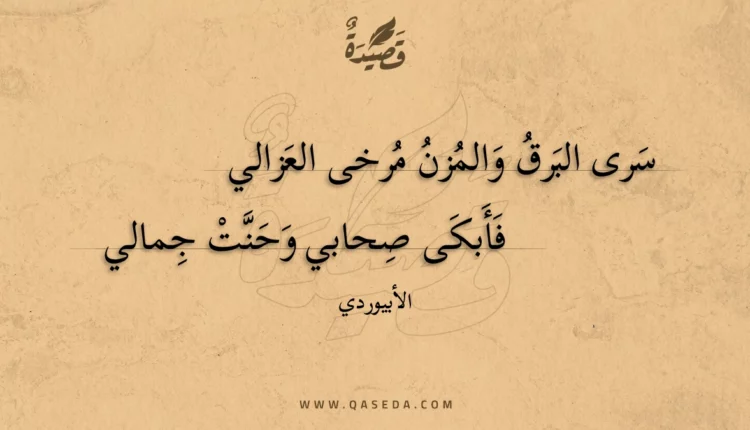 قَصِيدَةٌ
سَرى البَرقُ وَالمُزنُ مُرخى العَزالي
فَأَبكَى صِحابي وَحَنَّتْ جِمالي
الأبيوردي
WWW.QASEDA.COM